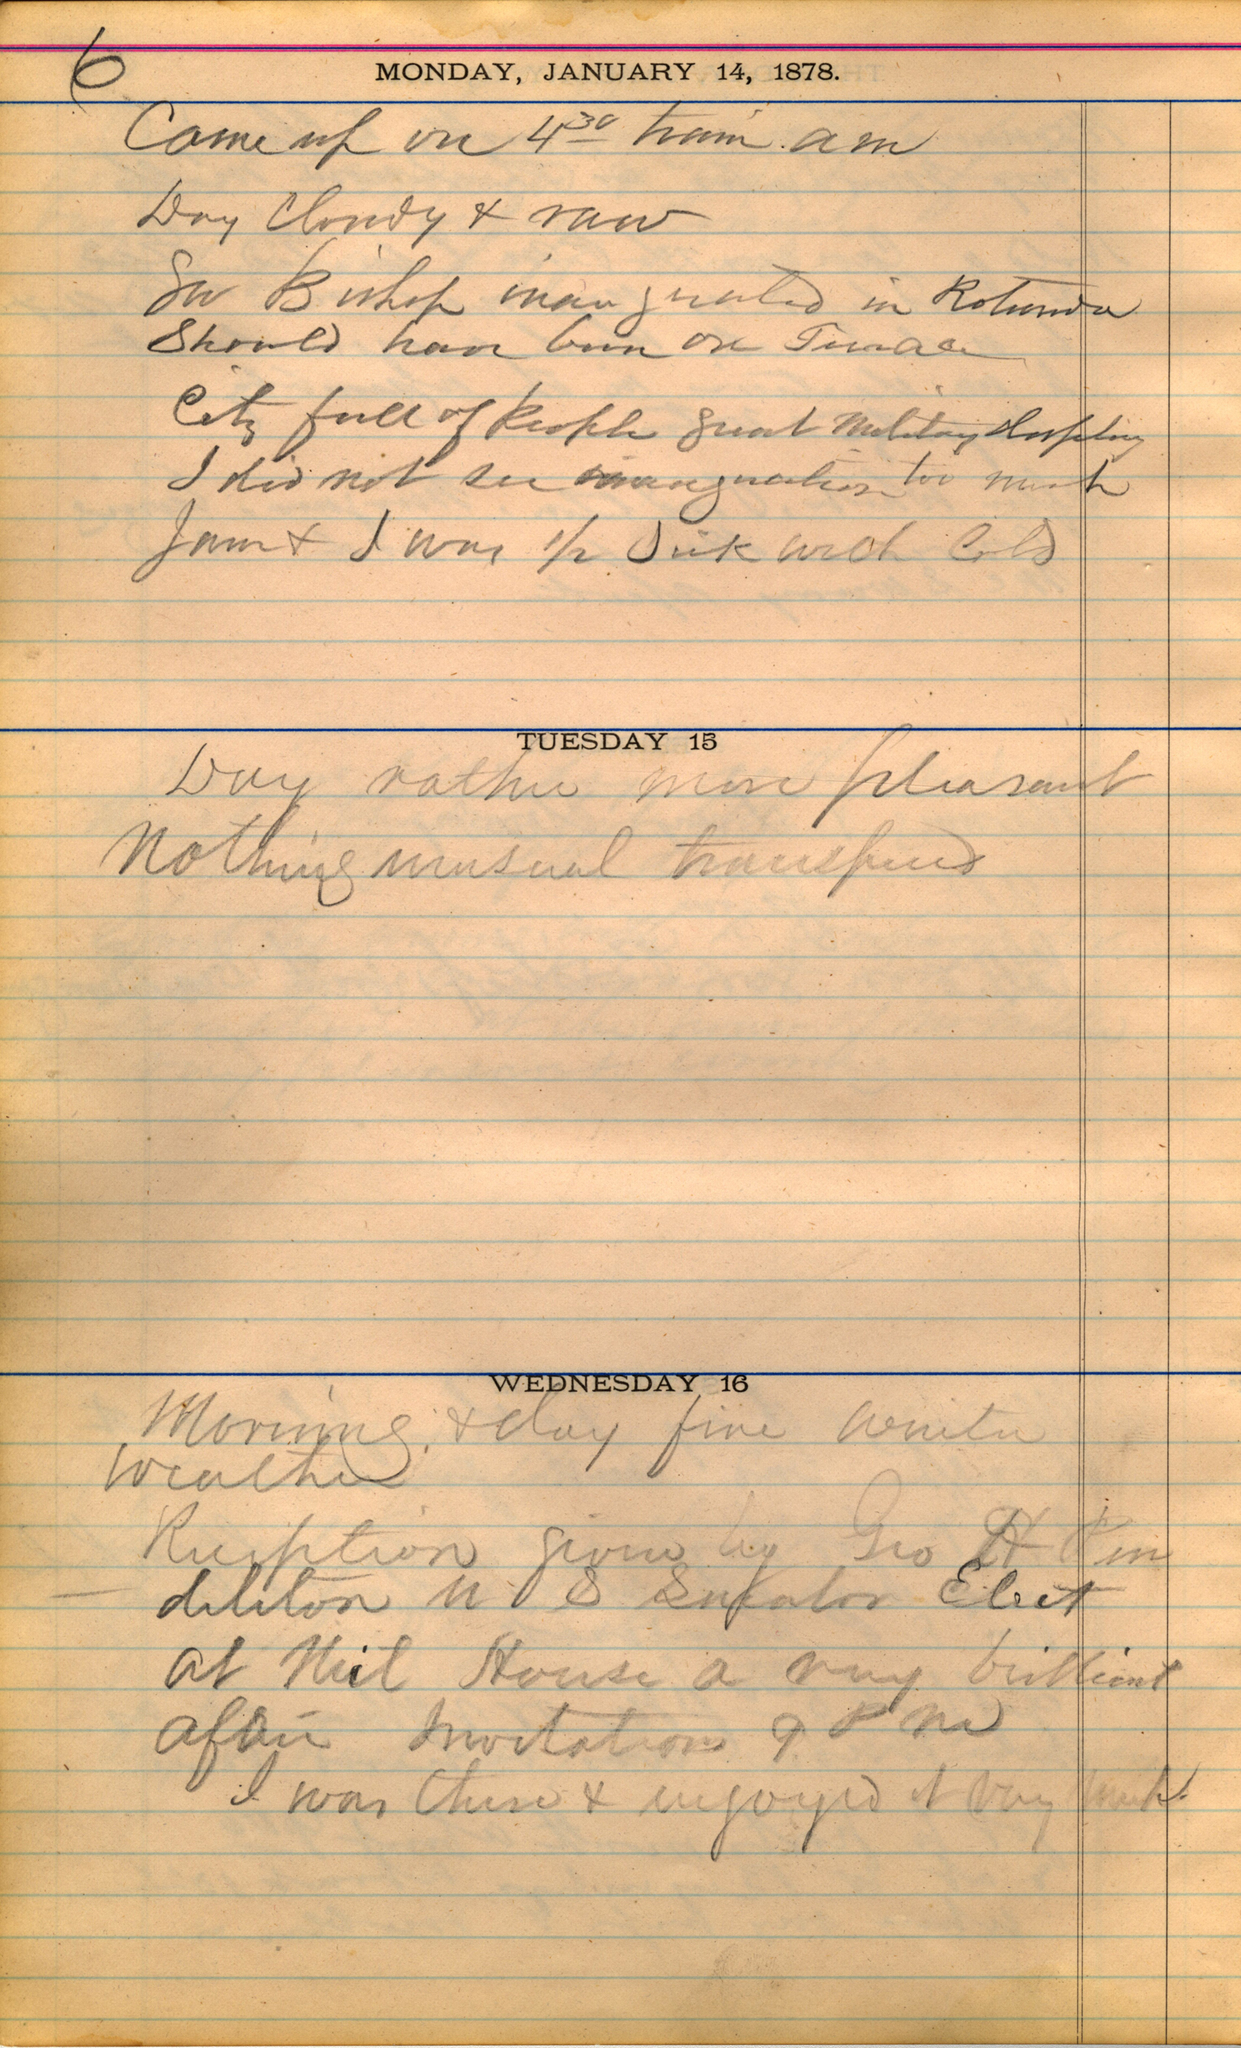 6
MONDAY, JANUARY 14, 1878.
Came up on 4 30 train am
Day Cloudy & raw
Gov Bishop inaugurated in Rotunda
Should have been on Terrace
City full of People great Military display
I did not see inauguration too much
Jam & I was 1/2 Sick with Cold
TUESDAY 15
Day rather more pleasant
Nothing unusual transpired
WEDNESDAY 16
Morning & day fine winter
weather
Reception given by Geo H Pen
dleton U S Senator Elect
at Neil House a very brilliant
affair Invitations 9 P M
I was there & enjoyed it very much.